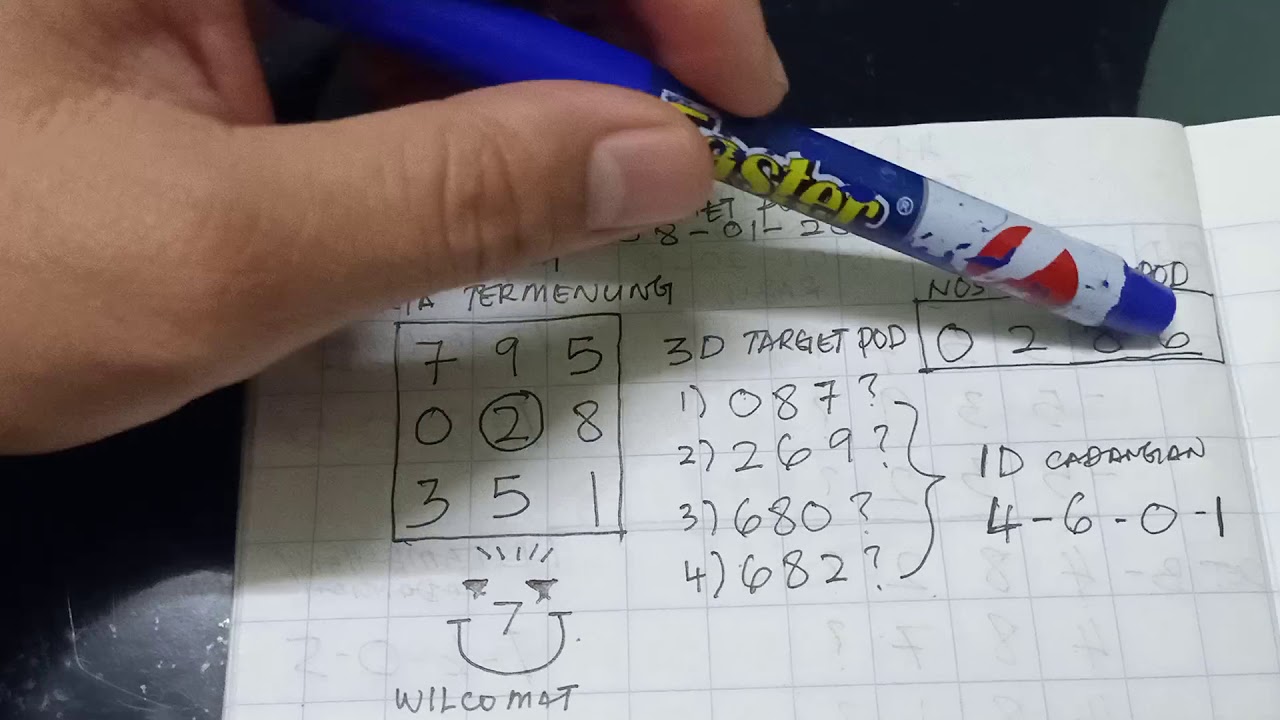 Faster®
8-01-20
TERMENUNG
NOS POD
7 9 5
0 2 8
3 5 1
3D TARGET POD
0 2 8 6
1) 087?
2) 269?
3) 680?
4) 682?
1D CADANGAN
4-6-0-1
7
WILCOMAT